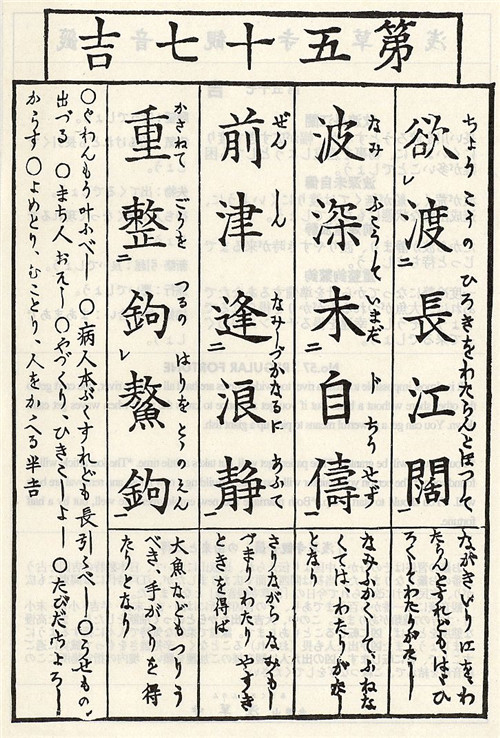 第五十七吉
ちょうこうのひろきをわたらんとほつして
欲レ渡二長江闊一
ながきいり江をわ
たらんとすれども、はゞひ
ろくてわたりがたし
波深未二自儔一
なみふかくしてふねな
くては、わたりがたし
となり
ぜんしんなみしづかなるにあふて
前津逢二浪静一
さりながらなみもし
づまり、わたりやすき
ときを得ば
かさねてごうをつるのはりをとゝのへん
重整二鉤レ鰲鉤一
大魚などもつりう
べき、手がゝりを得
たりとなり
〇ぐわんもう叶ふべし 〇病人本ぷくすれども長引くべし 〇うせもの
出づる 〇まち人おそし 〇やづくり、ひきこしよし 〇たびだちよろし
からず 〇よめとり、むことり、人をかゝへる半吉